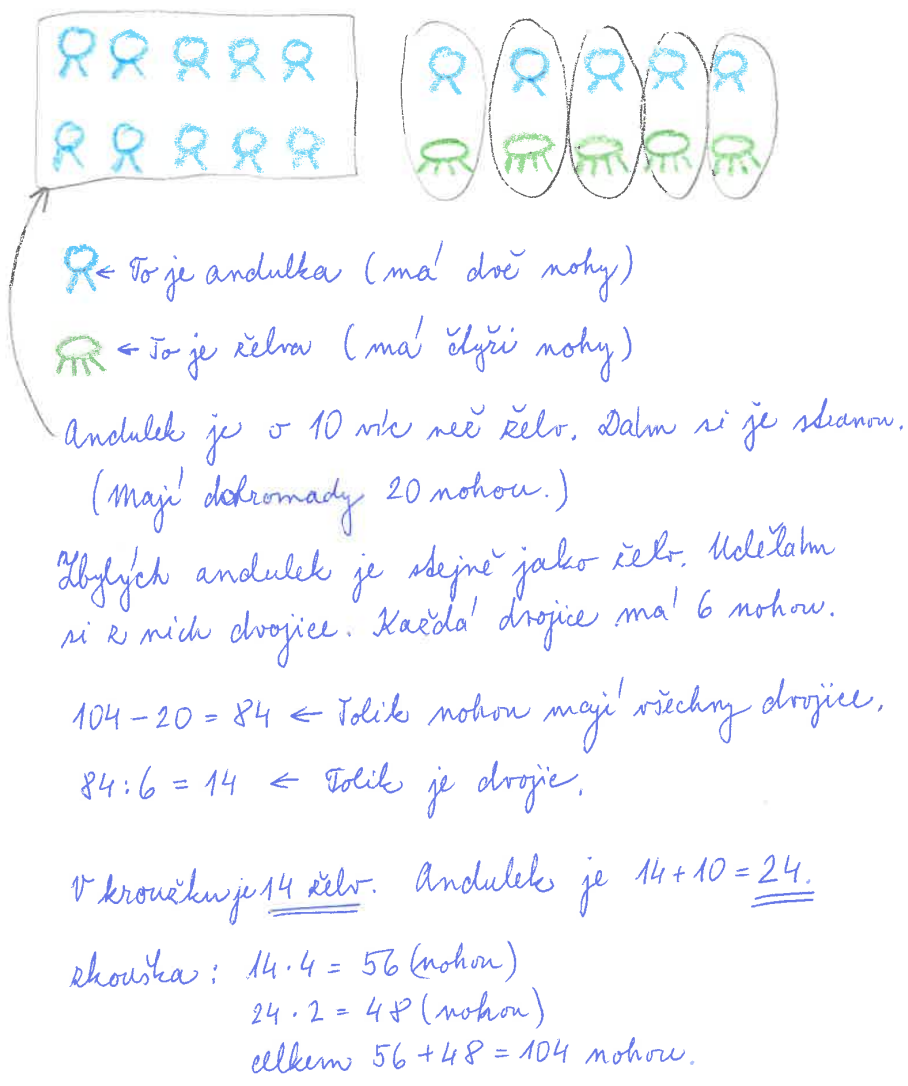 ← To je andulka (má dvě nohy)
← To je želva (má čtyři nohy)
Andulek je o 10 víc než želv. Dám si je stranou.
(Mají dohromady 20 nohou.)
Zbylých andulek je stejně jako želv. Udělám
si z nich dvojice. Každá dvojice má 6 nohou.
104 - 20 = 84 ← Tolik nohou mají všechny dvojice.
84 : 6 = 14 ← Tolik je dvojic.
V kroužku je 14 želv. Andulek je 14 + 10 = 24.
zkouška: 14 · 4 = 56 (nohou)
24 · 2 = 48 (nohou)
celkem 56 + 48 = 104 nohou.